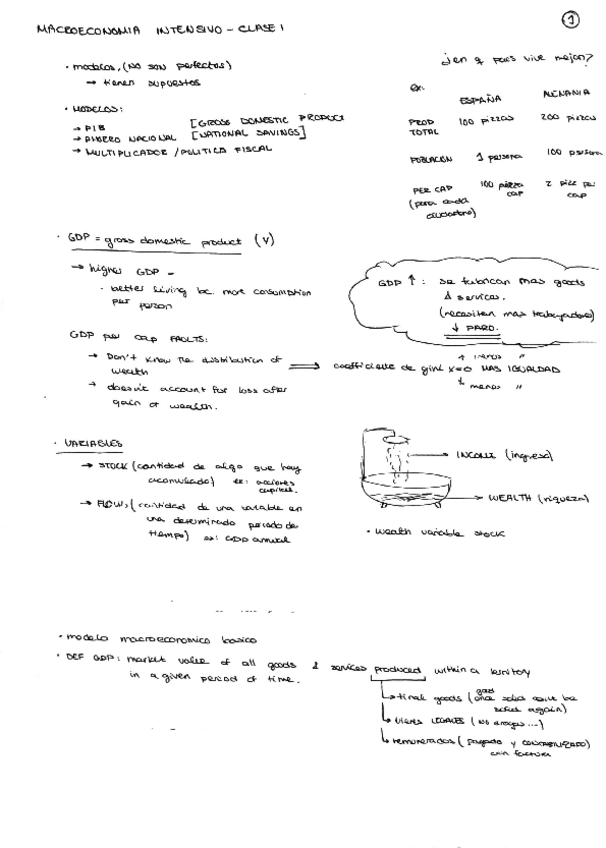 MACROECONOMIA INTENSIVO - CLASE 1
1
· modelos, (NO SON perfectos)
→ tienen supuestos
· MODELOS:
→ PIB [GROSS DOMESTIC PRODUCT]
→ AHORRO NACIONAL [NATIONAL SAVINGS]
→ MULTIPLICADOR / POLITICA FISCAL
¿en q pais vive mejor?
ex:
ESPAÑA ALEMANIA
PROD TOTAL 100 pizzas 200 pizzas
POBLACION 1 persona 100 persona
PER CAP 100 pizza cap 2 pizz per cap
(para cada ciudadano)
· GDP = gross domestic product (Y)
→ higher GDP -
· better living bc. more consumption
per person
GDP ↑ : se fabrican mas goods
& servicos.
(necesitan mas trabajadores)
↓ PARO.
GDP per cap FAULTS:
→ Don't know the distribution of
wealth
⇒ coefficiente de gini x=0 MAS IGUALDAD
menos "
→ doesn't account for loss after
gain of wealth.
· VARIABLES
→ STOCK (cantidad de algo que hay
acumulado) ex: acciones
capital.
→ FLOW, (cantidad de una variable en
una determinado periodo de
tiempo) ex: GDP annual
→ INCOME (ingreso)
→ WEALTH (riqueza)
· wealth variable stock
· modelo macroeconomico basico
· DEF GDP: market value of all goods & services produced within a territory
in a given period of time.
→ final goods (once sold cant be
good
sold again)
→ bienes LEGALES (NO drogas ...)
→ remunerados (pagado y CONTABILIZADO)
con factura